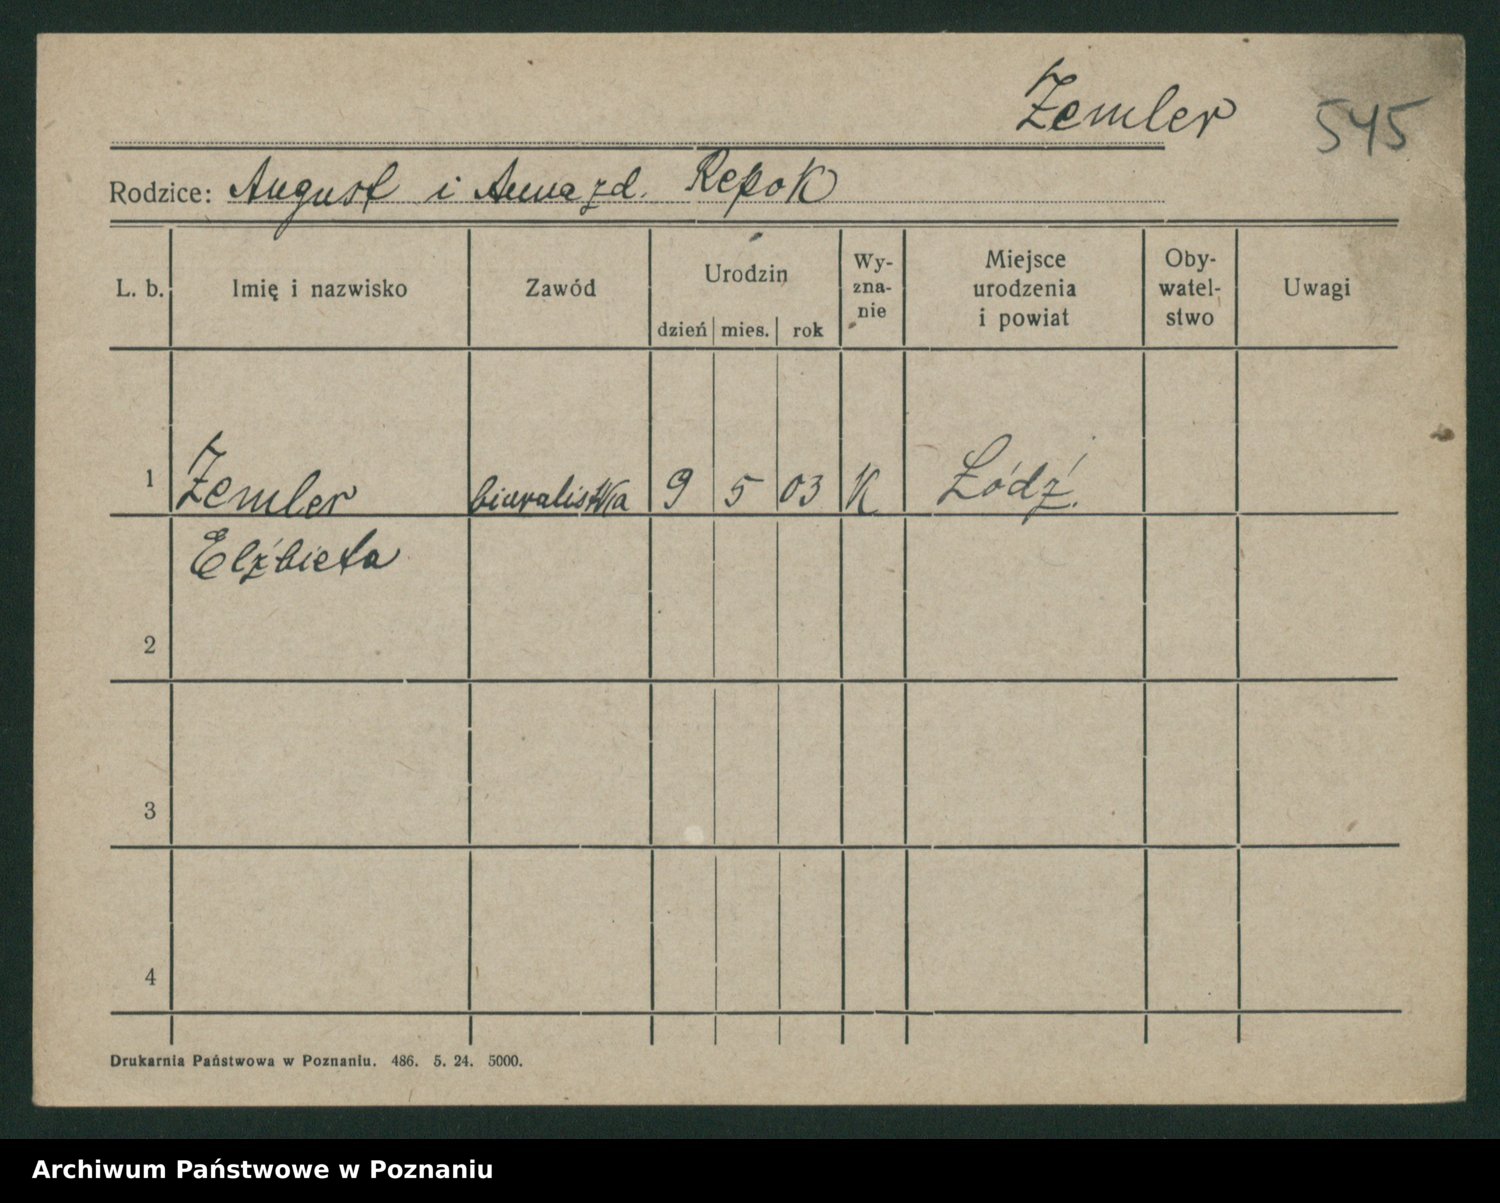 Zemler
545
Rodzice: August i Anna zd. Repok
L. b. Imię i nazwisko Zawód Urodzin dzień mies. rok Wy-zna-nie Miejsce urodzenia i powiat Oby-watel-stwo Uwagi
1 Zemler biuralistka 9 5 03 K Łódź.
Elżbieta
2
3
4
Drukarnia Państwowa w Poznaniu. 486. 5. 24. 5000.
Archiwum Państwowe w Poznaniu